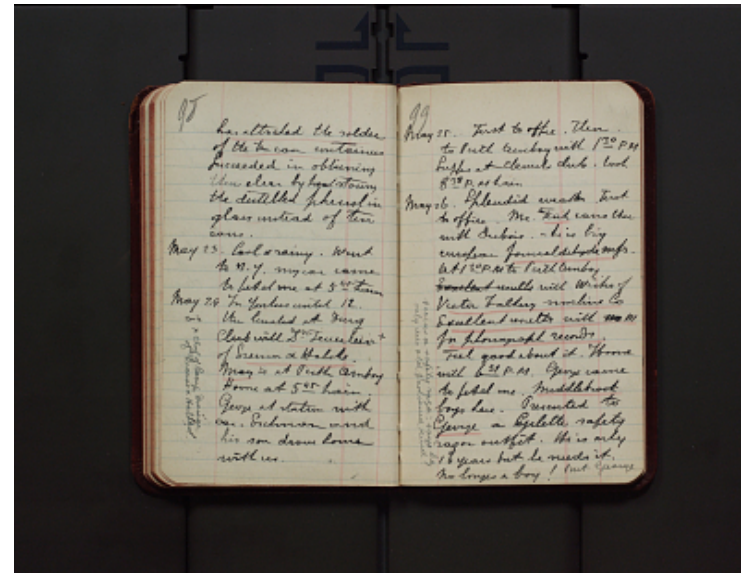 98
has attacked the solder
of the tin can containers
succeeded in obtaining
then clear by
the distilled phenol in
glass instead of tin
cans.
May 23. Cool & rainy. Went
to N.Y. my car came
to fetch me at 5 train
May 24 In Yonkers until 12.
then lunched at
Club with Dr
of
May is at Perth Amboy
Home at 5 45 train.
George at station with
car. and
his son drove home
with us.
99
May 25. First to office. Then
to Perth Amboy with 1 30 P.M
Supper at Chemists Club. took
8 P.M. train
May 26. Splendid weather First
to office. Mr. came there
with Dubois. - he is big
european formaldehyde mfr.
At 1 P.M to Perth Amboy
Excellent results with of
Excellent results with
for phonograph records.
Feel good about it. Home
with 6 P.M. George came
to fetch me. Middlebrook
boys here. Presented to
George a Gillette safety
razor outfit. He is only
16 years but he needs it.
No longer a boy! but George